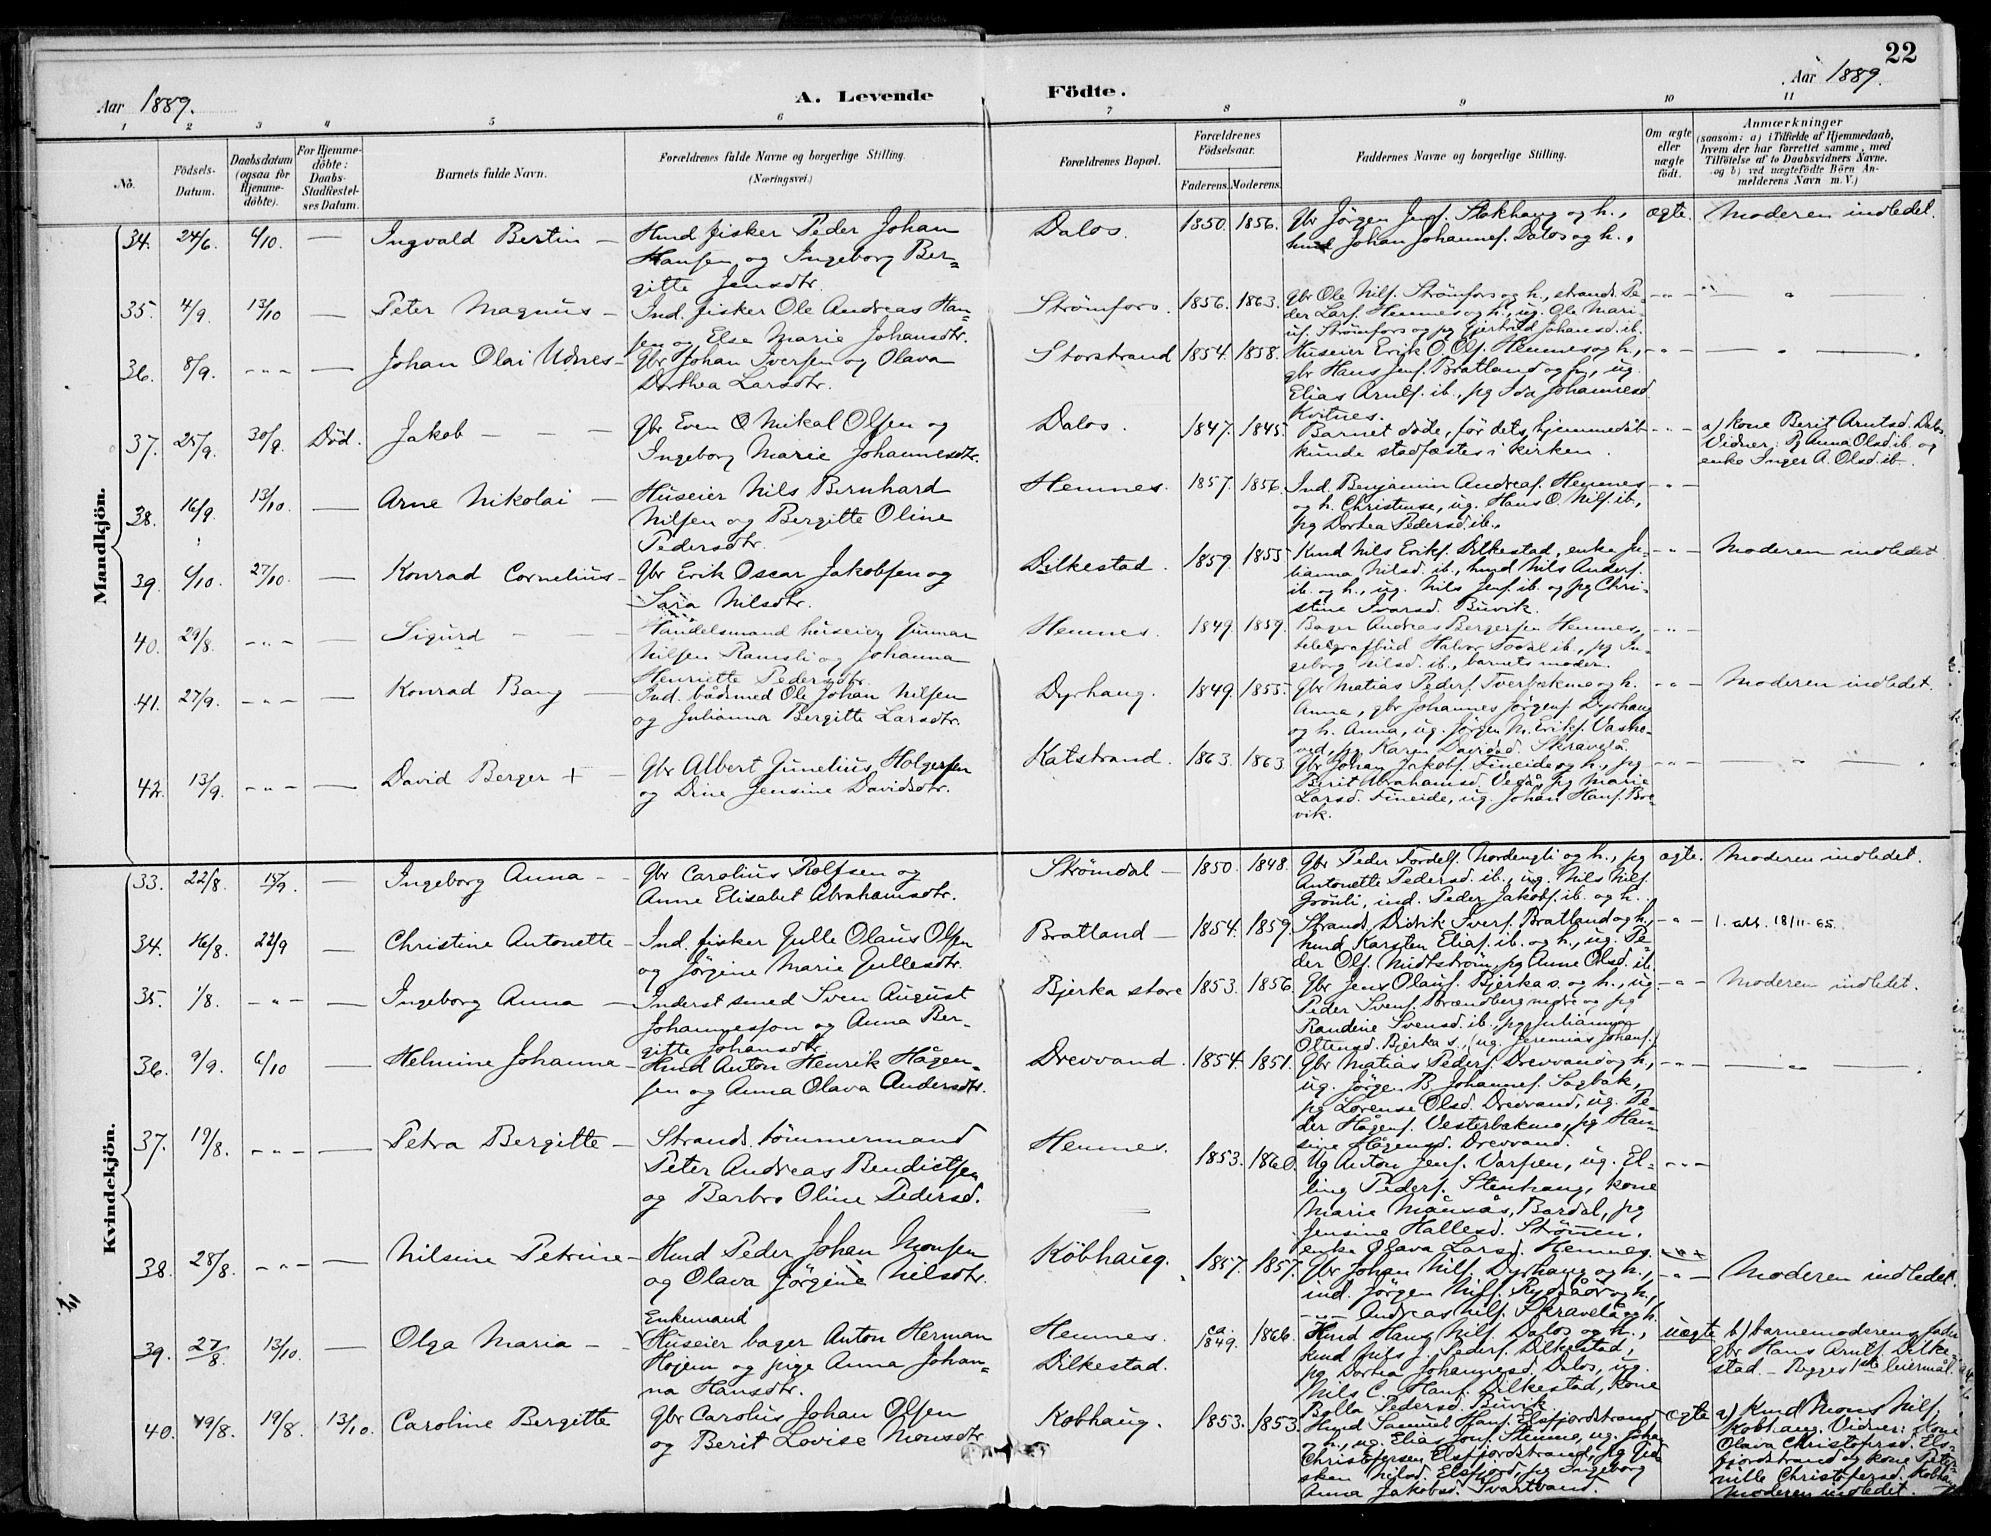 22
Aar 1889.
A. Levende Födte.
Aar 1889.
1 2 3 4 5 6 7 8 9 10 11
No.
Födsels-Datum.
Daabsdatum (ogsaa for Hjemme-döbte).
For Hjemme-döbte: Daabs-Stadfæstel-ses Datum.
Barnets fulde Navn.
Forældrenes fulde Navne og borgerlige Stilling. (Næringsvei.)
Forældrenes Bopæl.
Forældrenes Födselsaar.
Faderens. Moderens.
Faddernes Navne og borgerlige Stilling.
Om ægte eller uægte födt.
Anmærkninger
(saasom: a) i Tilfælde af Hjemmedaab,
hvem der har forrettet samme, med
Tilföielse af to Daabsvidners Navne.
og b) ved uægtefödte Börn An-
melderens Navn m. V.)
Mandkjön.
34. 24/6. 6/10. — Ingvald Bertin —
Hmd fisker Peder Johan
Hansen og Ingeborg Ber=
gitte Jensdtr.
Dalos. 1850. 1856.
Gbr Jörgen Jens. Stokhaug og h.,
hmd Johan Johannes. Dalos og h.
ægte. Moderen indledet.
35. 4/9. 13/10 — Peter Magnus —
Ind. fisker Ole Andreas Han=
sen og Else Marie Johansdtr.
Strömfors. 1856. 1863.
Gbr Ole Nils. Strömfors og h., strands. Pe-
der Lars. Hemnes og h., ug. Ole Mari-
us. Strömfors og pg Gjertrud Johansd. ib.
— " — — " —
36. 8/9. — " — — Johan Olai Udnes —
Gbr Johan Iversen og Olava
Dorthea Larsdtr.
Storstrand 1854. 1858.
Huseier Erik O. Ols. Hemnes og h.,
gbr Hans Jens. Bratland og h., ug.
Elias Arnts. ib., pg Ida Johannesd
Kvitnes.
— " — — " —
37. 25/9. 30/9. Död. Jakob — — —
Gbr Even O Mikal Olsen og
Ingeborg Marie Johannesdtr.
Dalos. 1847. 1845.
Barnet döde, för dets hjemmedåb
kunde stadfæstes i kirken.
— " —
a) Kone Berit Arntsd. Dalos
Vidner: Pg Anna Olsd. ib. og
enke Inger A. Olsd. ib.
38. 16/9. 13/10. — Arne Nikolai —
Huseier Nils Bernhard
Nilsen og Bergitte Oline
Pedersdtr.
Hemnes. 1857. 1856.
Ind. Benjamin Andreas. Hemnes
og h. Christense, ug. Hans O. Nils. ib.,
pg Dortea Pedersd. ib.
— " —
39. 6/10. 27/10. — Konrad Cornelius —
Gbr Erik Oscar Jakobsen og
Sara Nilsdtr.
Dilkestad. 1859. 1855.
Kmd Nils Eriks. Dilkestad, enke Ju-
lianna Nilsd. ib., hmd Nils Anders.
ib. og h., ug. Nils Jens. ib. og pg Chri-
stine Ivarsd. Buvik.
— " — Moderen indledet.
40. 29/8. — " — — Sigurd — —
Handelsmand huseier Gunnar
Nilsen Ramsli og Johanna
Henriette Pedersdtr.
Hemnes. 1849. 1859.
Bager Andreas Bergersen Hemnes,
telegrafbud Halvor Tovdal ib., pg In-
geborg Nilsd. ib., barnets moder.
— " —
41. 27/9. — " — — Konrad Bang —
Ind. bådsmed Ole Johan Nilsen
og Julianna Bergitte Larsdtr.
Dyrhaug. 1849. 1855.
Gbr Matias Peders. Tverbakmo og h.
Anna, gbr Johannes Jörgens. Dyrhaug
og h. Anna, ug. Jörgen M. Eriks. Vaske-
ved, pg Karen Davidsd. Skravelå.
— " — Moderen indledet.
42. 13/9. — " — — David Berger + —
Gbr Albert Junelius Holgersen
og Dine Jensine Davidsdtr.
Katstrand. 1863. 1863.
Gbr Johan Jakobs. Fineide og h., pg
Berit Abrahamsd. Veså, pg Marie
Larsd. Fineide, ug. Johan Hans. Bre-
vik.
— " — — " —
Kvindekjön.
33. 22/8. 15/9. — Ingeborg Anna —
Gbr Carolius Rolfsen og
Anne Elisabet Abrahamsdtr.
Strömdal — 1850. 1848.
Gbr Peder Tordels. Nordengli og h., pg
Antonette Pedersd. ib., ug. Nils Nils.
Grönli, ind. Peder Jakobs. ib. og h.
ægte. Moderen indledet.
34. 16/8. 22/9 — Christine Antonette —
Ind. fisker Gulle Olaus Olsen
og Jörgine Marie Gullesdtr.
Bratland — 1854. 1859.
Strands. Didrik Ivers. Bratland og h.,
hmd Karsten Elias. ib. og h., ug. Pe-
der Ols. Midtström, pg Anne Olsd. ib.
— " — 1. att. 18/11-65.
35. 1/8. — " — — Ingeborg Anna —
Inderst smed Sven August
Johannesson og Anna Ber-
gitte Johansdtr
Bjerka store 1853. 1856.
Gbr Jens Olaus. Bjerka s. og h., ug
Peder Svens. Brændberg nedre og pg
Randine Svensd. ib., pg Julianna
Oltensd. Bjerka s., (ug. Jeremias Johans.)
— " — Moderen indledet.
36. 9/9. 6/10 — Helmine Johanna —
Hmd Anton Henrik Hågen-
sen og Anna Olava Andersdtr.
Drevvand. 1854. 1851.
Gbr Matias Peders. Drevvand og h.,
ug. Jörgen B Johannes. Sagbak,
pg Lorense Olsd. Drevvand, ug. Pe-
der Hågens. Vesterbakmo, pg Han-
sine Hågensd. Drevvand.
— " — — " —
37. 19/8. — " — — Petra Bergitte —
Strands. tömmermand
Peter Andreas Bendictsen
og Barbro Oline Pedersd.
Hemnes. 1853. 1860.
Ug Anton Jens. Varpen, ug. El-
ling Peders. Stenhaug, kone
Marie Månsås, Bardal, pg
Jensine Hallesd. Strömen,
enke Olava Larsd. Hemnes.
— " —
38. 28/8. — " — — Nilsine Petrine —
Hmd Peder Johan Monsen
og Olava Jörgine Nilsdtr.
Kobhaug. 1857. 1857.
Gbr Johan Nils. Dyrhaug og h.,
ind. Jörgen Nils. Rydsåör og h.,
— " — Andreas Nils. Skravelå og h.
— " — Moderen indledet.
39. 27/8. 13/10. — Olga Maria —
Enkemand
Huseier bager Anton Herman
Höjem og pige Anna Johan-
na Hansdtr.
Hemnes.
Dilkestad.
ca. 1849. 1866.
Hmd Hans Nils. Dalos og h.,
kmd Nils J. Peders. Dilkestad,
pg Dortea Johannesd. Dalos, ug.
Nils C. Hans. Dilkestad, kone
Bolla Pedersd. Buvik
uægte b) barnemoderens fader
gbr Hans Arnts. Dilke-
stad. — Begges 1ste leiermål.
40. 19/8. 19/8. 13/10. Caroline Bergitte
Gbr Carolus Johan Olsen
og Berit Lovise Monsdtr.
Kobhaug. 1853. 1853.
Hmd Samuel Hans. Elsfjordstrand
og h., ug. Elias Jons. Stenmo, ug. Johan
Christophersen Elsfjordstrand, pg
Nilsd. Elsfjord, pg Ingeborg
Anna Jakobsd. Svartvand.
ægte a) Kmd Mons Nils.
Kobhaug. Vidner: Kone
Olava Christofersd. Els-
fjordstrand og kone Peter-
nille Christofersd. Kobhaug
Moderen indledet.